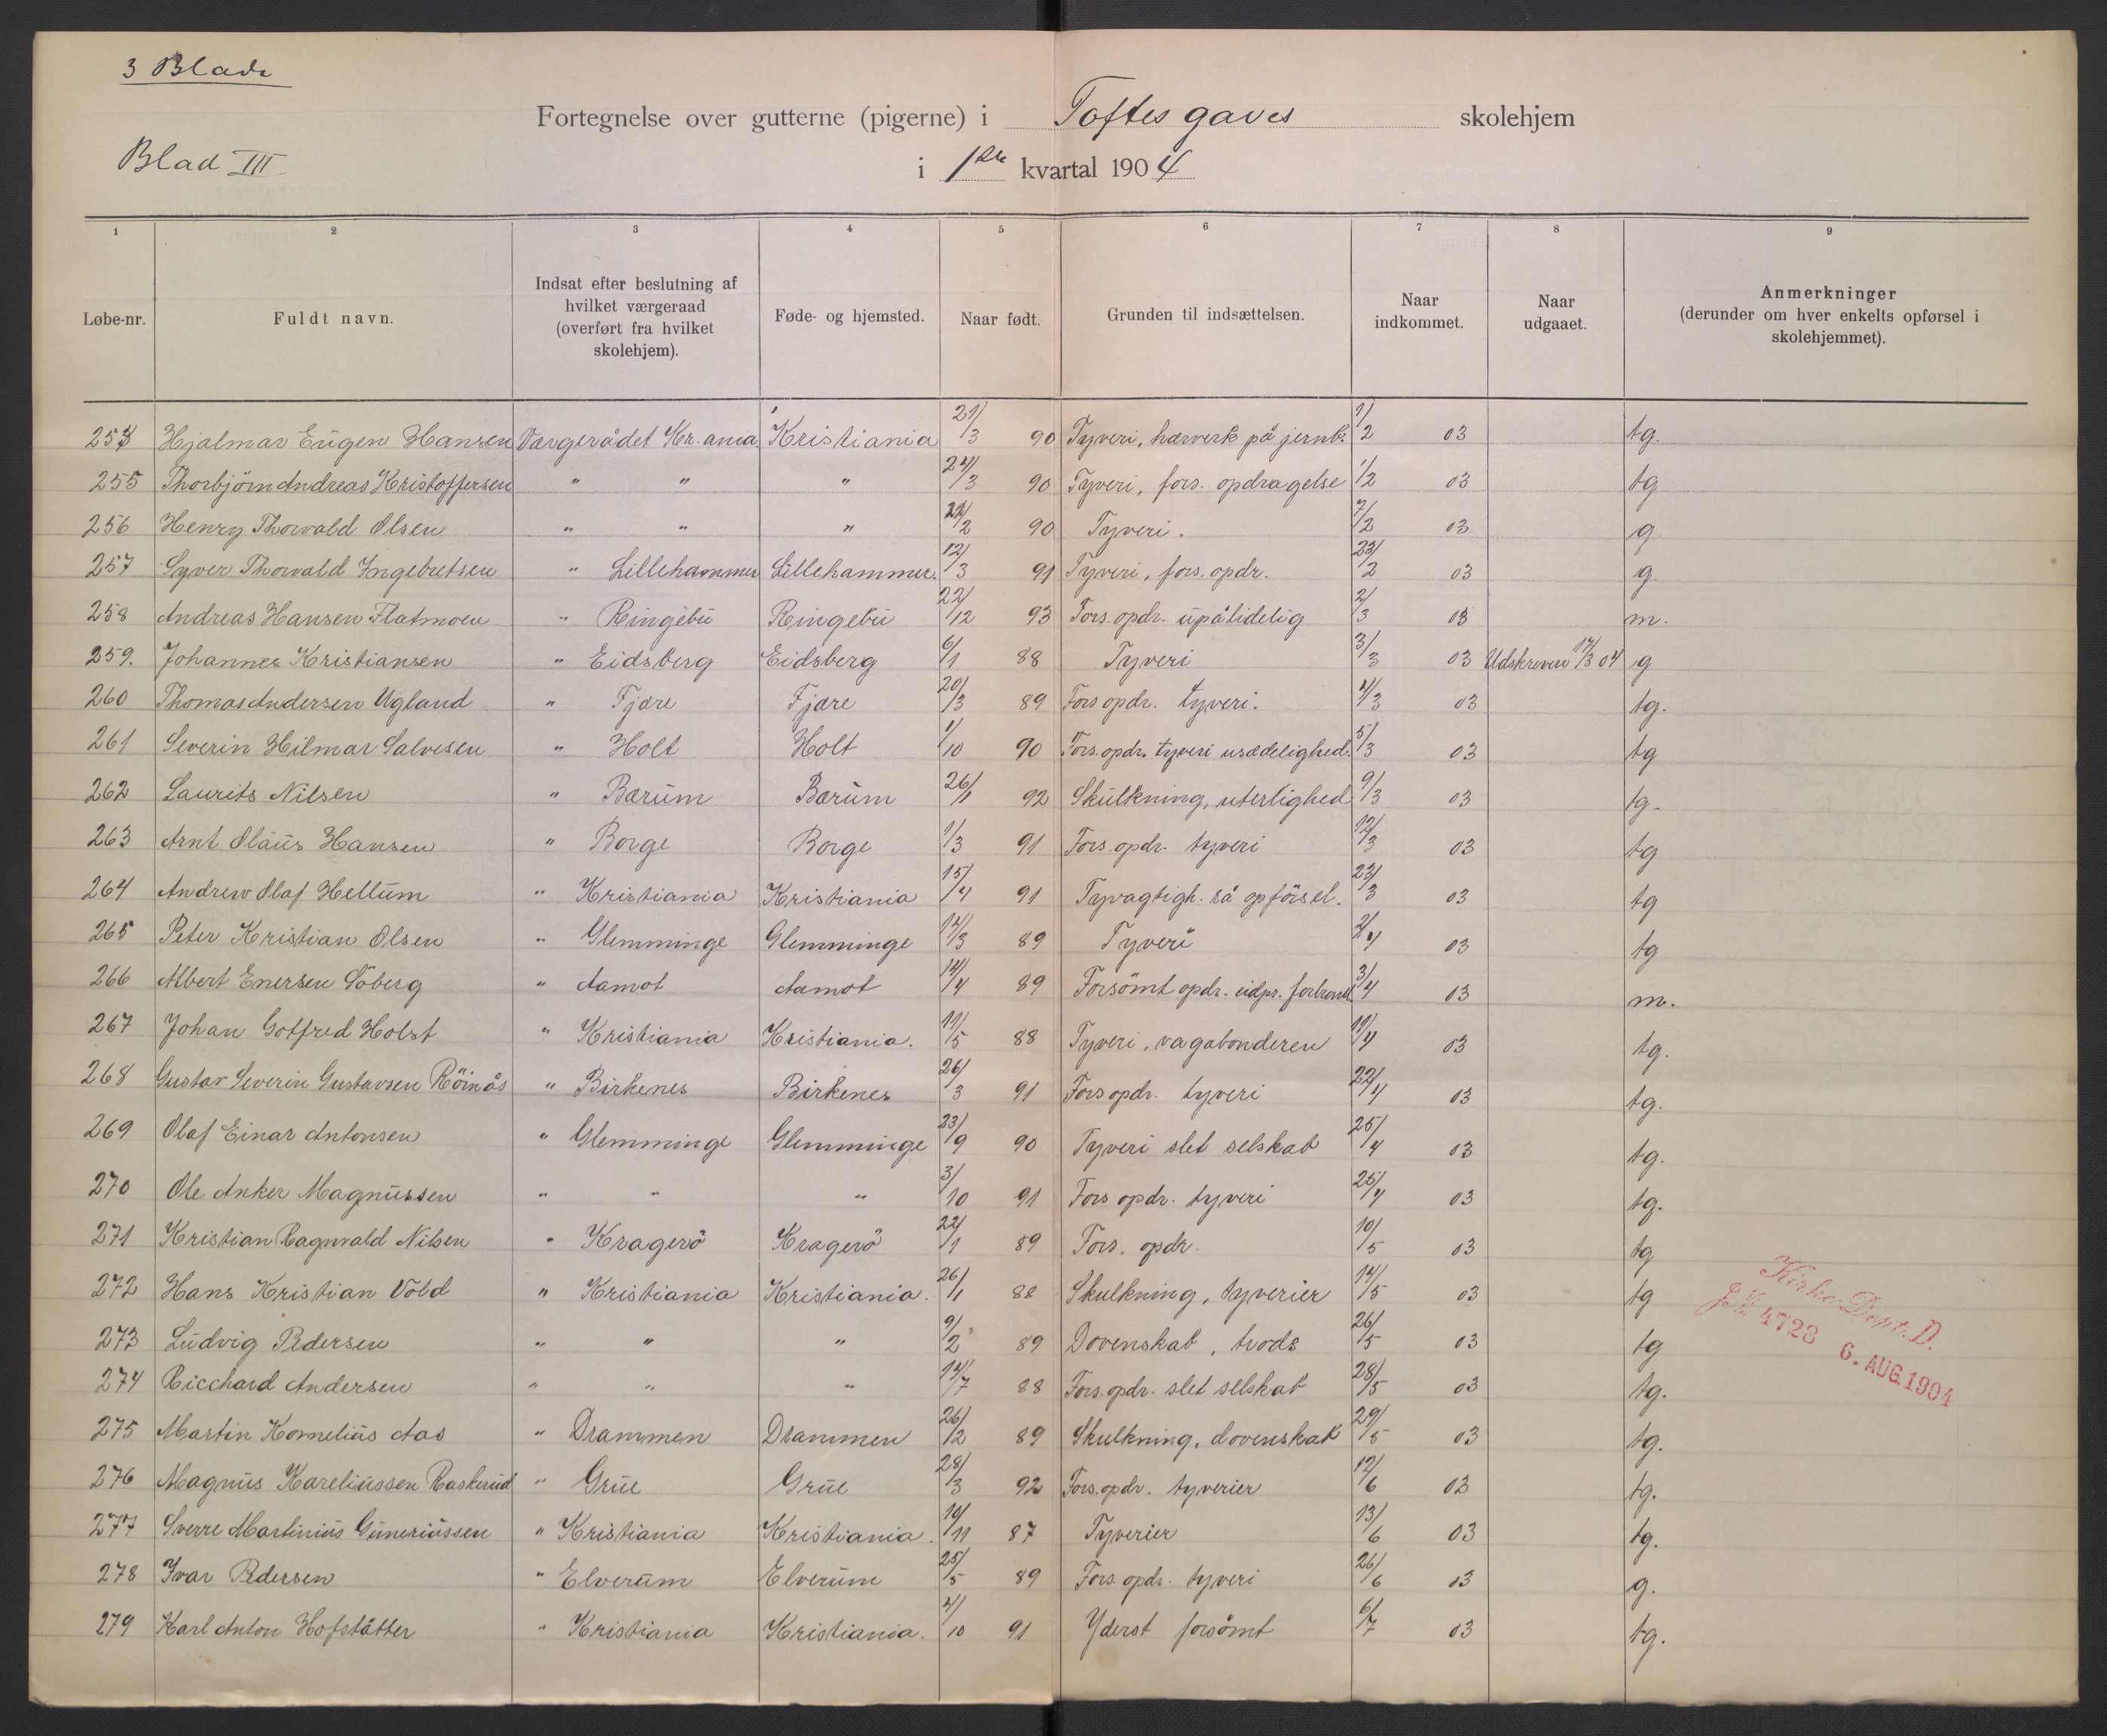 3 Blade
Fortegnelse over gutterne (pigerne) i Toftes gaves skolehjem
Blad III
i 1ste kvartal 1904
1 2 3 4 5 6 7 8 9
Løbe-nr. Fuldt navn. Indsat efter beslutning af hvilket værgeraad (overført fra hvilket skolehjem). Føde- og hjemsted. Naar født. Grunden til indsættelsen. Naar indkommet. Naar udgaaet. Anmerkninger (derunder om hver enkelts opførsel i skolehjemmet).
254 Hjalmar Eugen Hansen Værgerådet Kr.ania Kristiania 21/3 90 Tyveri, hærverk på jernb. 1/2 03 tg.
255 Thorbjörn Andreas Kristoffersen " " " 24/3 90 Tyveri, fors. opdragelse 1/2 03 tg
256 Henry Thorvald Olsen " " " /2 90 Tyveri. 7/2 03 g
257 Syver Thorvald Ingebretsen " Lillehammer Lillehammer. 12/3 91 Tyveri, fors. opdr. 23/2 03 g.
258 Andreas Hansen Flatmoen " Ringebu Ringebu 22/12 93 Fors. opdr. upålidelig 2/3 03 m.
259. Johannes Kristiansen " Eidsberg Eidsberg 6/1 88 Tyveri 3/3 03 Udskreven 17/3 04 g
260 Thomas Andersen Ugland " Fjære Fjære 20/3 89 Fors opdr. tyveri. 4/3 03 tg.
261 Severin Hilmar Salvesen " Holt Holt 1/10 90 Fors. opdr. tyveri usædelighed. 5/3 03 tg
262 Laurits Nilsen " Bærum Bærum 26/1 92 Skulkning, uterlighed 9/3 03 tg.
263 Arnt Olaus Hansen " Borge Borge 1/3 91 Fors. opdr. tyveri 12/3 03 tg
264 Andrew Olaf Hellum " Kristiania Kristiania 15/4 91 Tyvagtigh. rå opförsel. 23/3 03 tg
265 Peter Kristian Olsen " Glemminge Glemminge 14/3 89 Tyveri 2/4 03 tg
266 Albert Enersen Söberg " Aamot Aamot 14/4 89 Forsömt opdr. 3/4 03 m.
267 Johan Gotfred Holst " Kristiania Kristiania. 11/5 88 Tyveri, vagabonderen 17/4 03 tg.
268 Gustav Severin Gustavsen Röinås " Birkenes Birkenes 26/3 91 Fors opdr. tyveri 22/4 03 tg.
269 Olaf Einar Antonsen " Glemminge Glemminge 23/9 90 Tyveri slet selskab 25/4 03 tg.
270 Ole Anker Magnussen " " " 3/10 91 Fors opdr. tyveri 25/4 03 tg.
271 Kristian Ragnvald Nilsen " Kragerö Kragerö 22/1 89 Fors. opdr. 10/5 03 tg
272 Hans Kristian Vold " Kristiania Kristiania. 26/1 88 Skulkning, tyverier 14/5 03 tg
273 Ludvig Pedersen " " " 9/2 89 Dovenskab, trods 26/5 03 tg
274 Ricchard Andersen " " " 14/7 88 Fors. opdr. slet selskab 28/5 03 tg.
275 Martin Kornelius Aas " Drammen Drammen 26/2 89 Skulkning, dovenskab 29/5 03 tg.
276 Magnus Kareliussen Raskerud " Grue Grue 28/3 92 Fors. opdr. tyverier 12/6 03 tg.
277 Sverre Martinius Guneriussen " Kristiania Kristiania. 10/11 87 Tyverier 13/6 03 tg.
278 Ivar Pedersen " Elverum Elverum 25/5 89 Fors. opdr. tyveri 26/6 03 g.
279 Karl Anton Hofstätter " Kristiania Kristiania. 4/10 91 Yderst forsömt 6/7 03 tg.
Kirke-Dept. D.
J.N. 4723 6. AUG. 1904